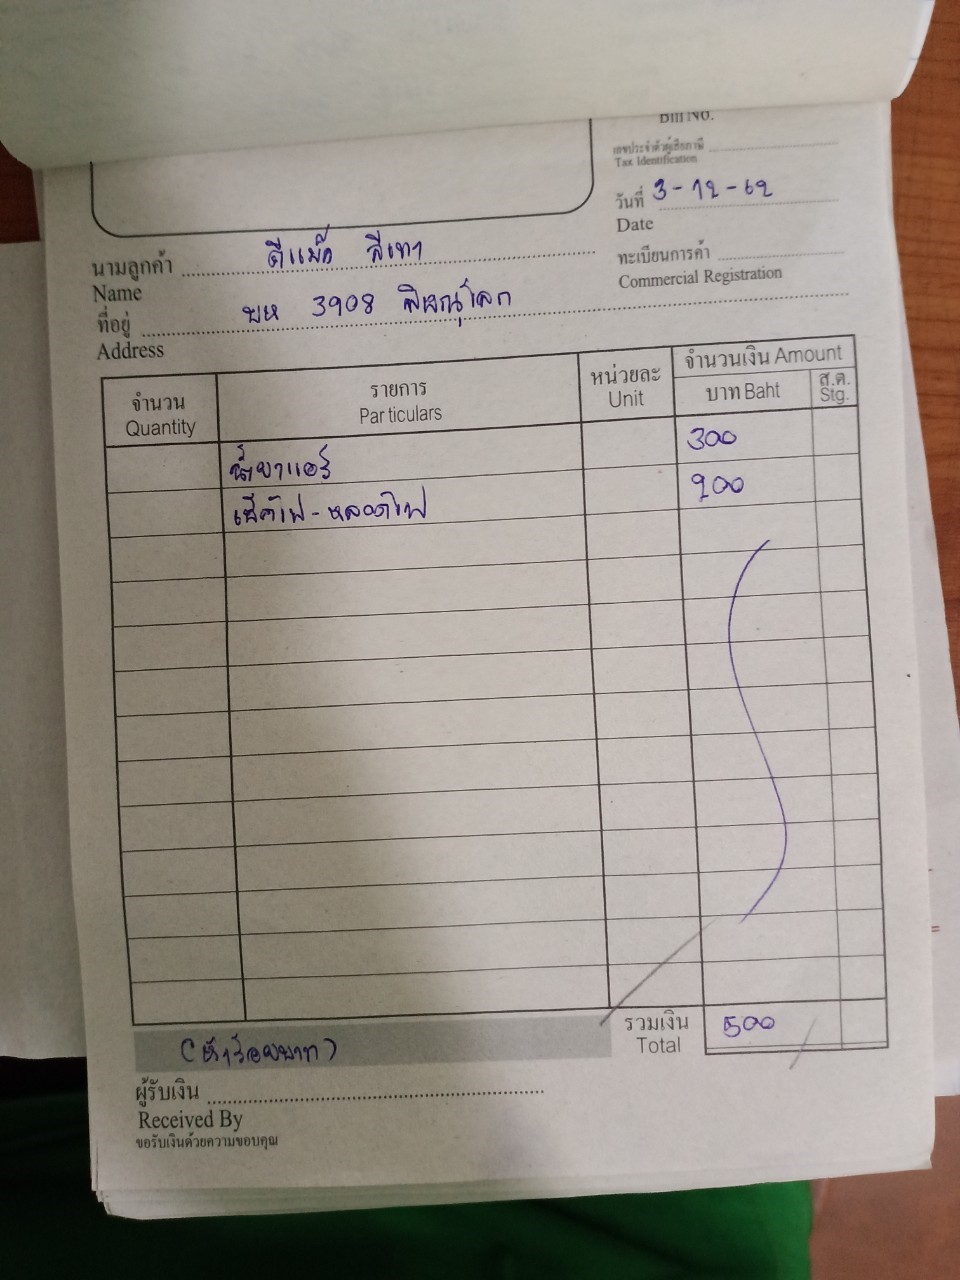 Bill No.
เลขประจำตัวผู้เสียภาษี
Tax Identification
วันที่ 3-12-62
Date
นามลูกค้า ดีแม็ก สีเทา
Name
ทะเบียนการค้า
Commercial Registration
ที่อยู่ พห 3908 พิษณุโลก
Address
จำนวน
Quantity
รายการ
Particulars
หน่วยละ
Unit
จำนวนเงิน Amount
บาท Baht
ส.ต.
Stg.
น้ำยาแอร์ 300
เช็คไฟ-หลอดไฟ 200
(ห้าร้อยบาท)
รวมเงิน 500
Total
ผู้รับเงิน
Received By
ขอรับเงินด้วยความขอบคุณ